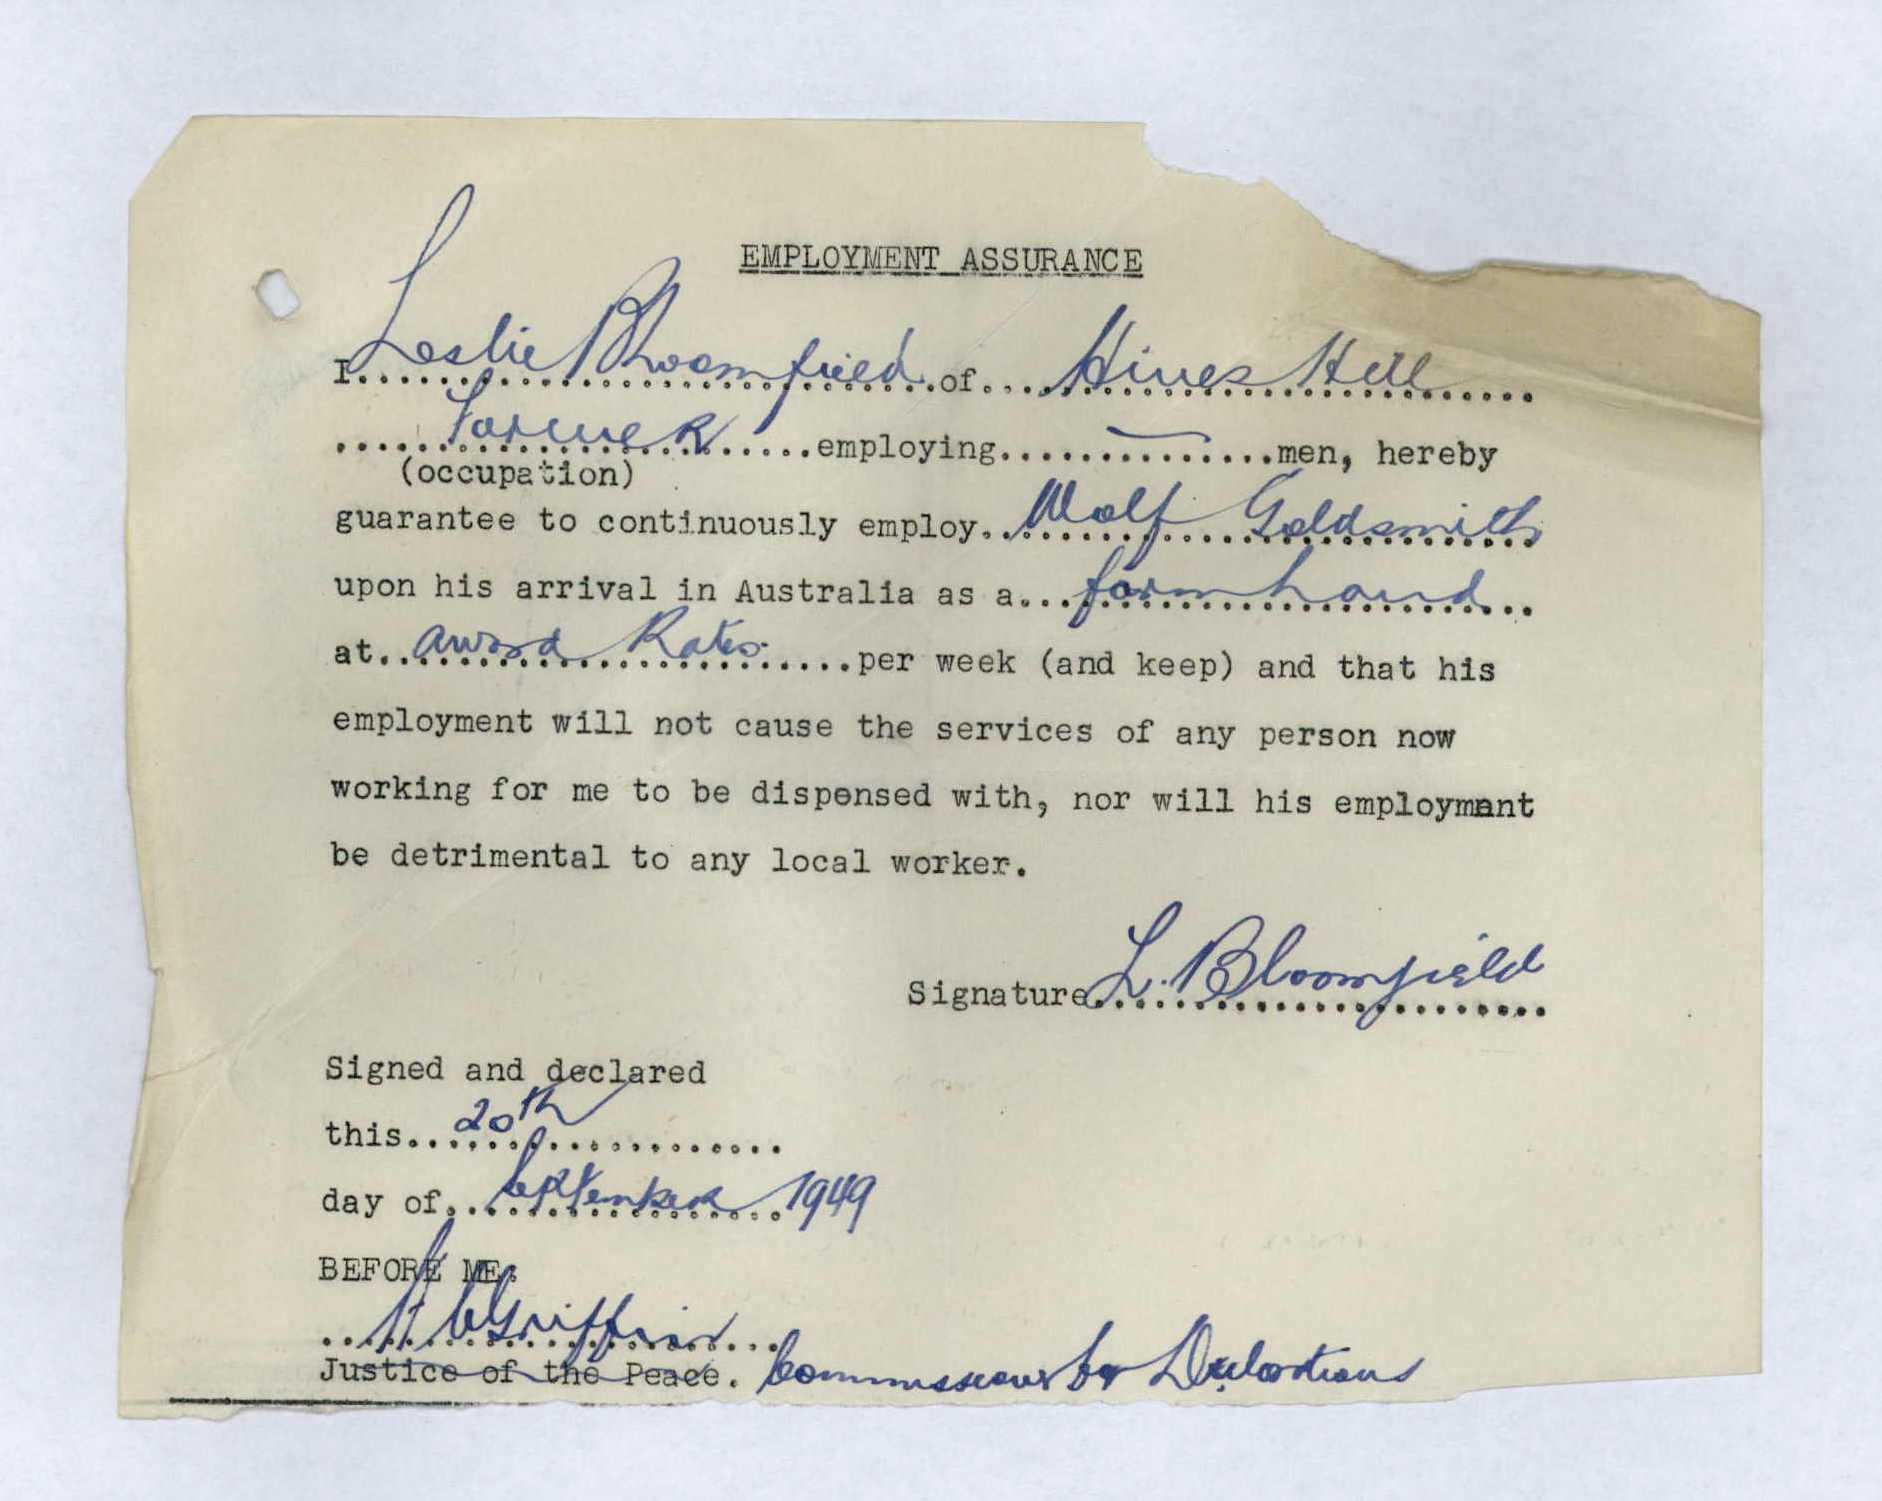 EMPLOYMENT ASSURANCE
I Leslie Bloomfield of Hines Hill
Farmer employing — men, hereby
(occupation)
guarantee to continuously employ Wolf Goldsmith
upon his arrival in Australia as a farm hand
at award Rates per week (and keep) and that his
employment will not cause the services of any person now
working for me to be dispensed with, nor will his employment
be detrimental to any local worker.
Signature L. Bloomfield
Signed and declared
this 20th
day of September 1949
BEFORE ME:
Griffin
Justice of the Peace. Commissioner for Declarations